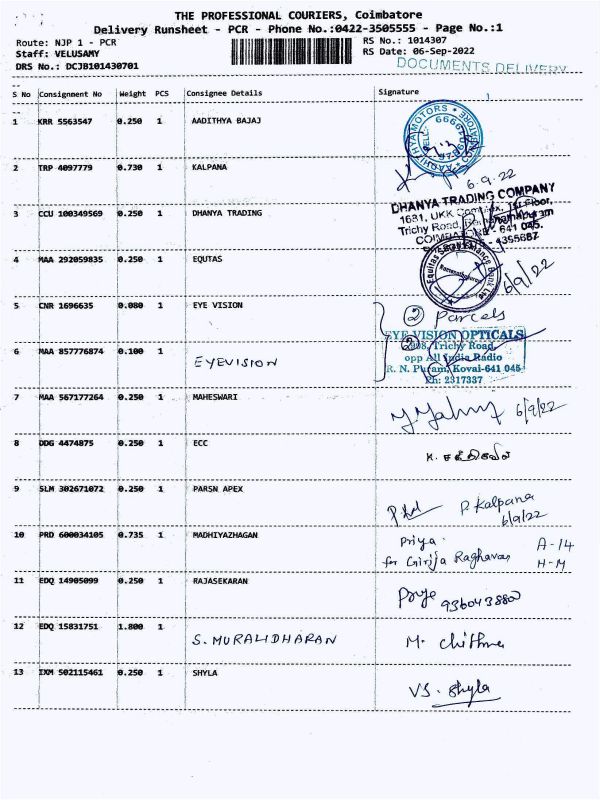 THE PROFESSIONAL COURIERS, Coimbatore
Delivery Runsheet - PCR - Phone No.:0422-3505555 - Page No.:1
Route: NJP 1 - PCR
RS No.: 1014307
Staff: VELUSAMY
RS Date: 06-Sep-2022
DRS No.: DCJB101430701
DOCUMENTS DELIVERY
S No Consignment No Weight PCS Consignee Details Signature
1 KRR 5563547 0.250 1 AADITHYA BAJAJ
AADHI MOTORS
2 TRP 4097779 0.730 1 KALPANA
6.9.22
DHANYA TRADING COMPANY
3 CCU 100349569 0.250 1 DHANYA TRADING
1631, UKK Complex, 1st Floor,
Trichy Road, Ramanathapuram
COIMBATORE - 641 045.
4355687
4 MAA 292059835 0.250 1 EQUTAS
Equitas Small Finance Bank Ltd
6/9/22
5 CNR 1696635 0.080 1 EYE VISION
2 Parcels
EYE VISION OPTICALS
6 MAA 857776874 0.100 1 EYEVISION
2
Trichy Road,
opp All India Radio
R. N. Puram, Kovai-641 045
Ph: 2317337
7 MAA 567177264 0.250 1 MAHESWARI
6/9/22
8 DDG 4474875 0.250 1 ECC
K. சக்திவேல்
9 SLM 302671072 0.250 1 PARSN APEX
P. Kalpana
6/9/22
10 PRD 600034105 0.735 1 MADHIYAZHAGAN
Priya
for Girija Raghavan
A-14
H-M
11 EDQ 14905099 0.250 1 RAJASEKARAN
936043880
12 EDQ 15831751 1.800 1 S. MURALIDHARAN
M. Chithra
13 IXM 502115461 0.250 1 SHYLA
VS. Shyla